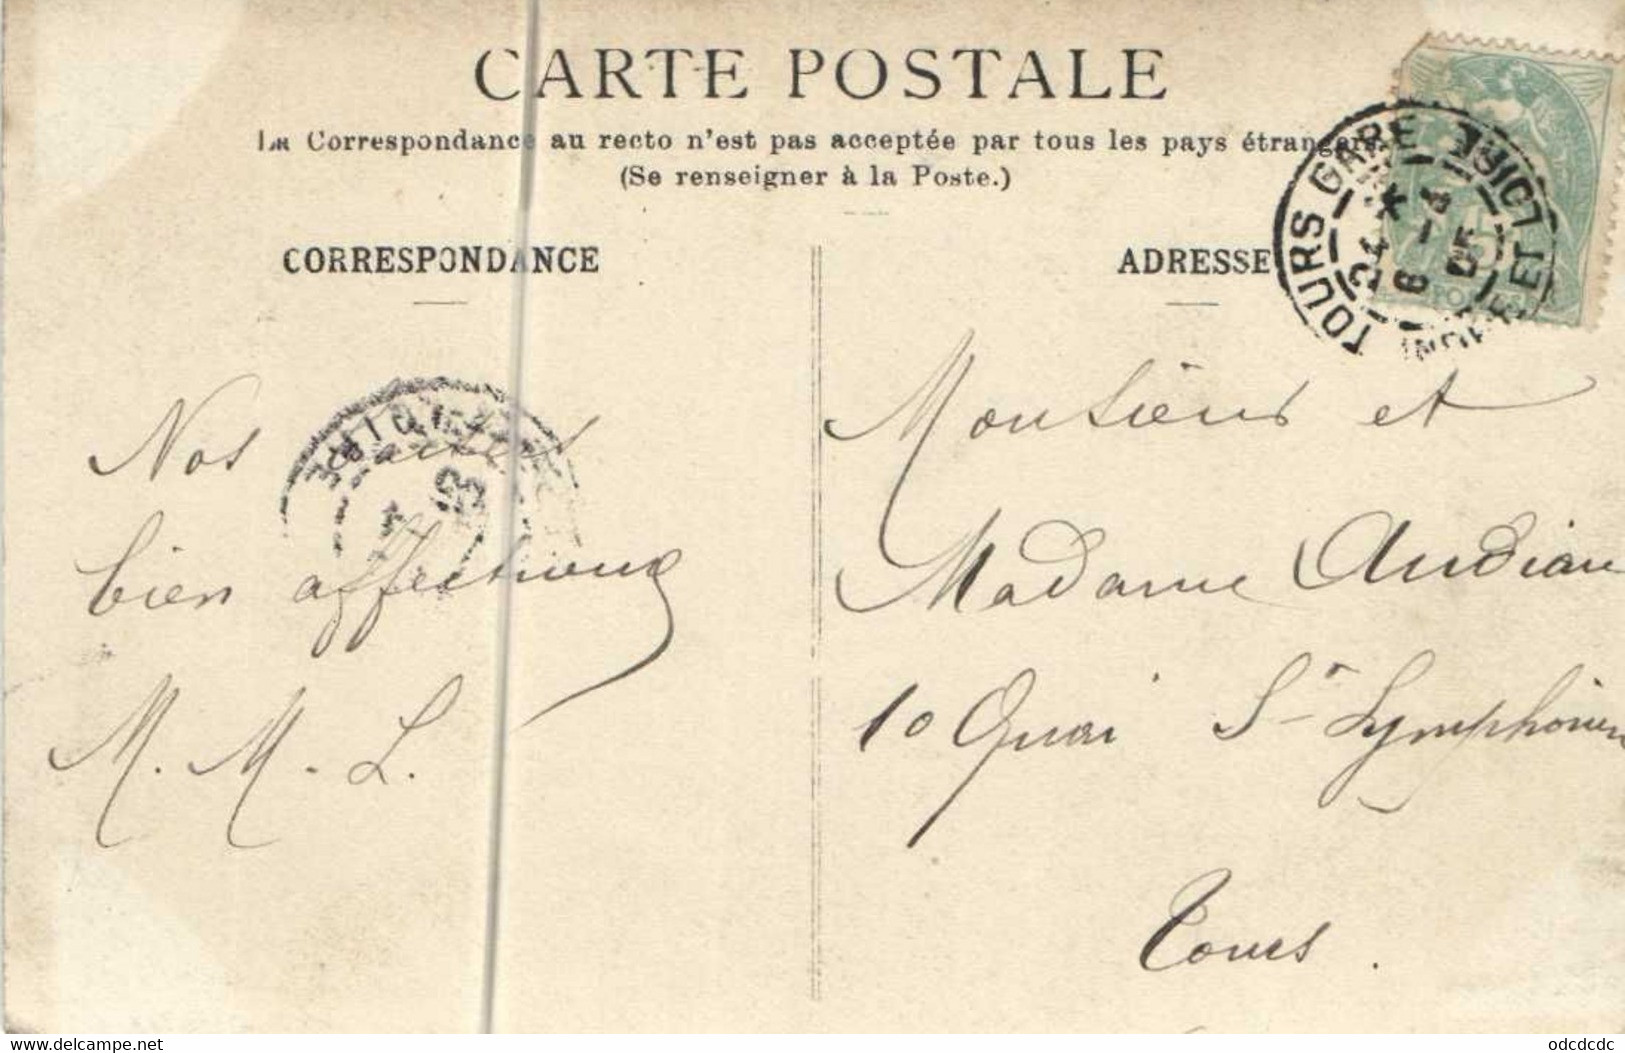 CARTE POSTALE
La Correspondance au recto n'est pas acceptée par tous les pays étrangers.
(Se renseigner à la Poste.)
CORRESPONDANCE
ADRESSE
TOURS GARE
INDRE ET LOIRE
6 - 4
05
Nos
bien affectioné
M. M. L.
Monsieur et
Madame Audiau
10 Quai St Symphorien
Tours.
www.delcampe.net
odcdcdc